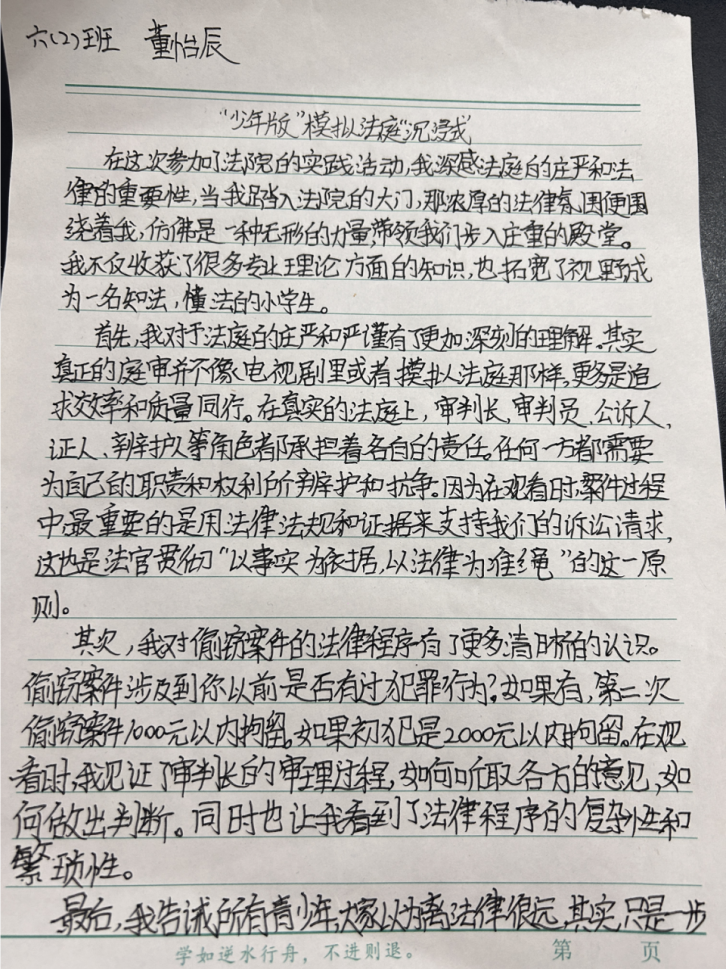 六(2)班 董怡辰
“少年版”模拟法庭“沉浸式”
在这次参加了法院的实践活动,我深感法庭的庄严和法
律的重要性,当我踏入法院的大门,那浓厚的法律氛围便围
绕着我,仿佛是一种无形的力量,带领我们步入庄重的殿堂。
我不仅收获了很多专业理论方面的知识,也拓宽了视野,成
为一名知法,懂法的小学生。
首先,我对于法庭的庄严和严谨有了更加深刻的理解。其实
真正的庭审并不像电视剧里或者摸拟法庭那样,更多是追
求效率和质量同行。在真实的法庭上,审判长、审判员、公诉人、
证人、辩护人等角色都承担着各自的责任。任何一方都需要
为自己的职责和权利所辨护和抗争。因为在观看时,案件过程
中最重要的是用法律法规和证据来支持我们的诉讼请求,
这也是法官贯彻“以事实为依据,以法律为准绳”的这一原
则。
其次,我对偷窃案件的法律程序有了更多清晰的认识。
偷窃案件涉及到你以前是否有过犯罪行为?如果有,第二次
偷窃案件1000元以内拘留。如果初犯是2000元以内拘留。在观
看时,我见证了审判长的审理过程,如何听取各方的意见,如
何做出判断。同时也让我看到了法律程序的复杂性和
繁琐性。
最后,我告诫所有青少年,大家以为离法律很远,其实只是一步
学如逆水行舟,不进则退。 第 页